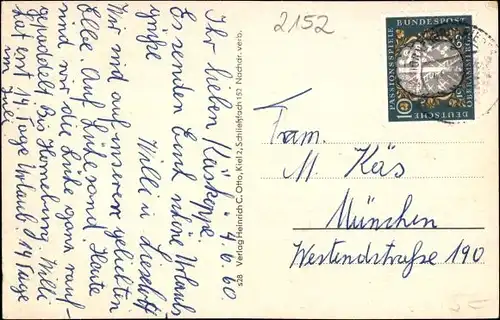 2152
Ihr lieben Käskeppe!
4.6.60
Es senden Euch schöne Urlaubs
grüße Willi u. Liselott
Wir sind auf unserem geliebten
Elbe. Auf Lühesand. Heute
sind wir die Lühe ganz rauf-
gepaddelt bis Horneburg. Willi
hat erst 14 Tage Urlaub. 14 Tage
im Juli
s28 Verlag Heinrich C. Otto, Kiel 2, Schließfach 152 Nachdr. verb.
DEUTSCHE BUNDESPOST
PASSIONSSPIELE
OBERAMMERGAU
10
Fam.
M. Käs
München
Westendstraße 190